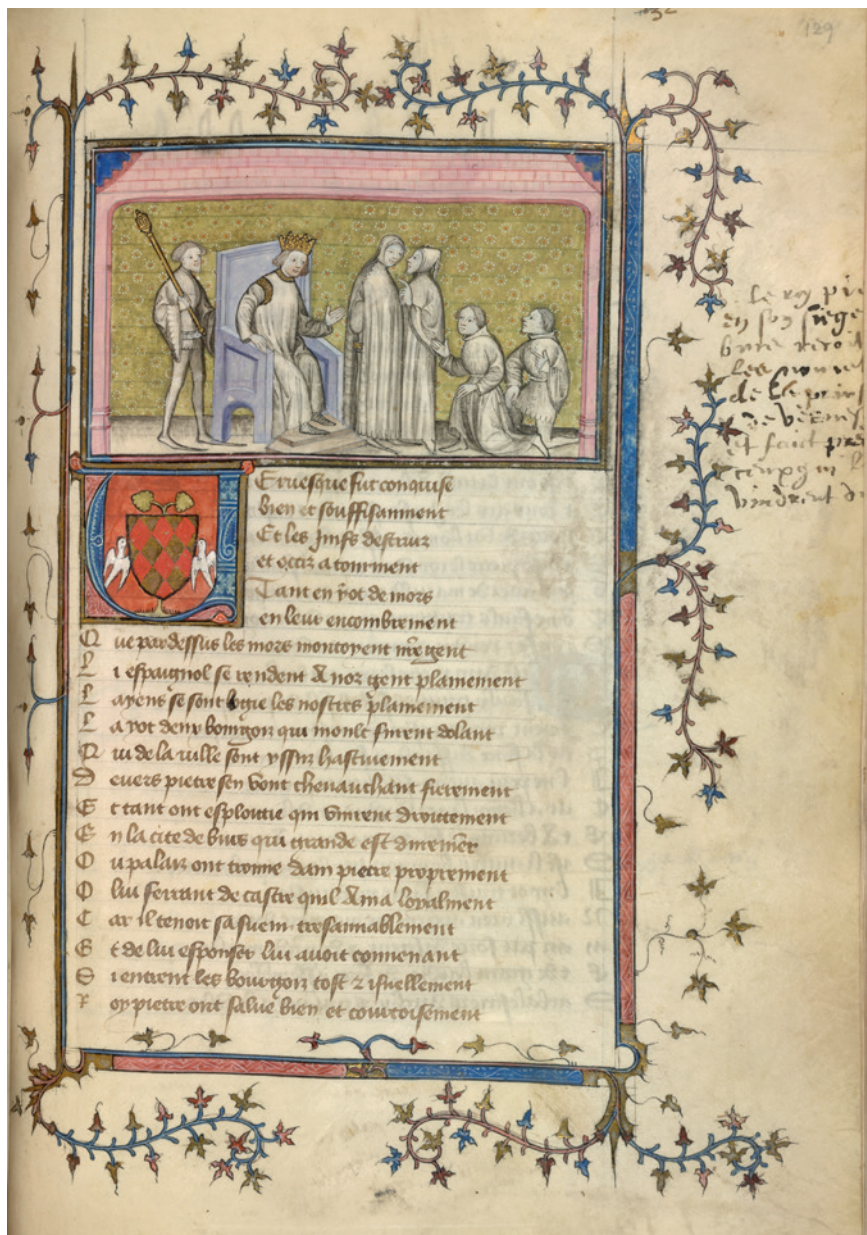 129
Le roy pie
en son siege
de
et fault
vindrent d
Ervesque fut conquise
bien et souffisanment
Et les Juifs destruis
et occiz a tourment
Tant en y ot de mors
en leur encombrement
Que par dessus les mors montoyent
Li espaignol se rendent a noz gent plainement
Layens se sont logie les nostres plainement
La y ot deux borgois qui moult furent dolant
Qui de la ville sont yssuz hastivement
Devers pietre sen vont chevauchant fierement
Et tant ont esploitie qui vinrent droitement
En la cite de burs qui grande est durement
Ou palaiz ont trouve dam pietre proprement
O lui ferrant de castre quil ama loyalment
Car il tenoit sa suem tresamiablement
Et de lui espouser lui avoit convenant
Si entrent les bourgoiz tost & isnellement
Roy pietre ont salue bien et courtoisement